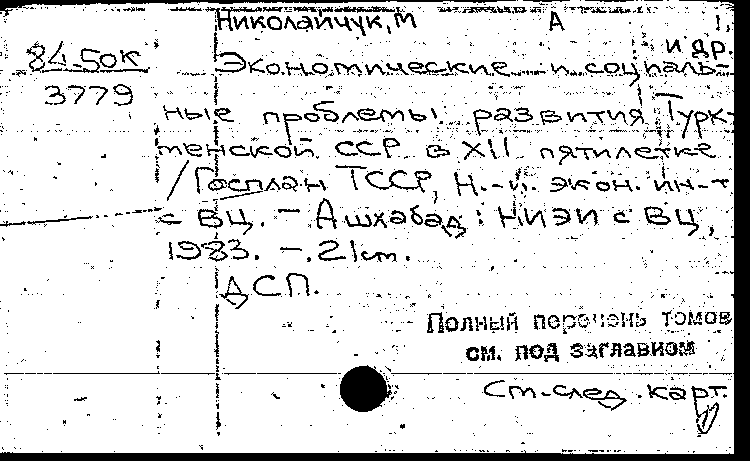 Николайчук, М А
и др.
84-50к
3779
Экономические и социаль-
ные проблемы развития Турк-
менской ССР в XII пятилетке
/ Госплан ТССР, Н.-и. экон. ин-т
с ВЦ. – Ашхабад: НИЭИ с ВЦ,
1983. –. 21 см.
ДСП.
Полный перечень томов
см. под заглавием
См. след. карт.